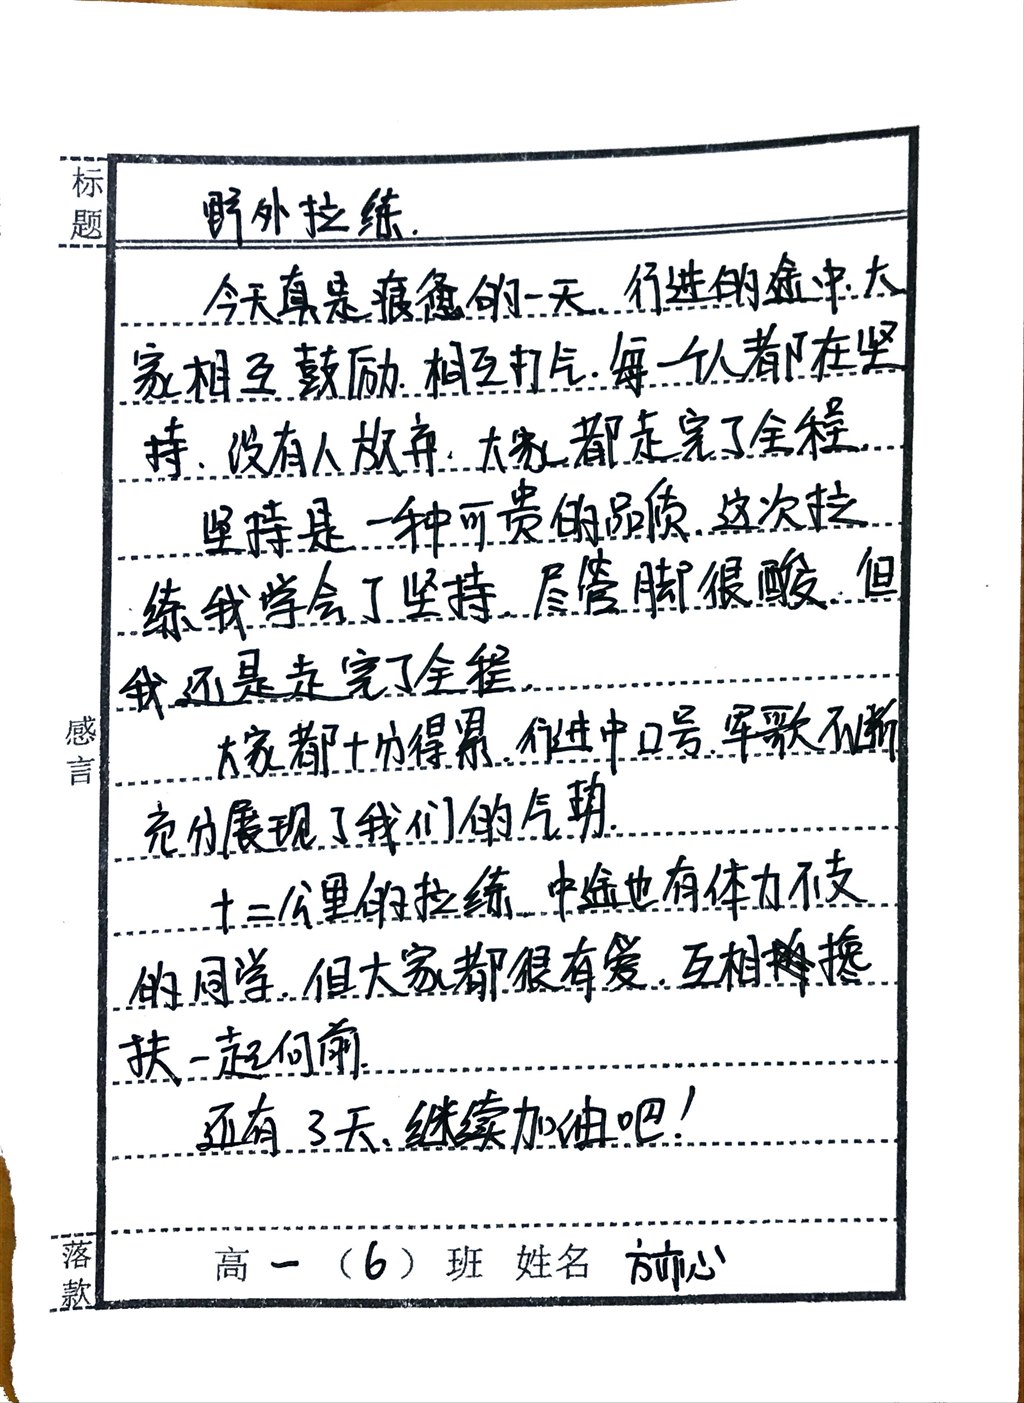 标题
野外拉练.
今天真是疲惫的一天.行进的途中.大
家相互鼓励.相互打气.每一个人都在坚
持.没有人放弃.大家都走完了全程.
坚持是一种可贵的品质.这次拉
练.我学会了坚持.尽管脚很酸.但
我还是走完了全程.
感言
大家都十分得累.行进中口号.军歌不断
充分展现了我们的气势.
十二公里的拉练.中途也有体力不支
的同学.但大家都很有爱.互相搀
扶.一起向前.
还有3天.继续加油吧!
落款
高一(6)班 姓名 方亦心